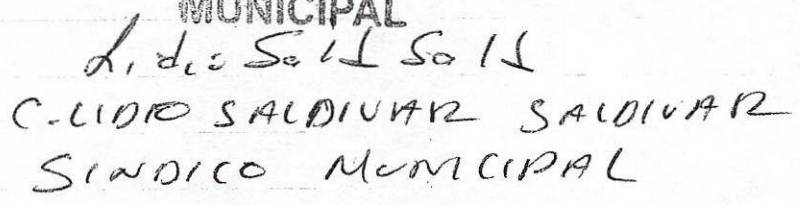 MUNICIPAL
Lidio Sald Sald
C. LIDIO SALDIVAR SALDIVAR
SINDICO MUNICIPAL